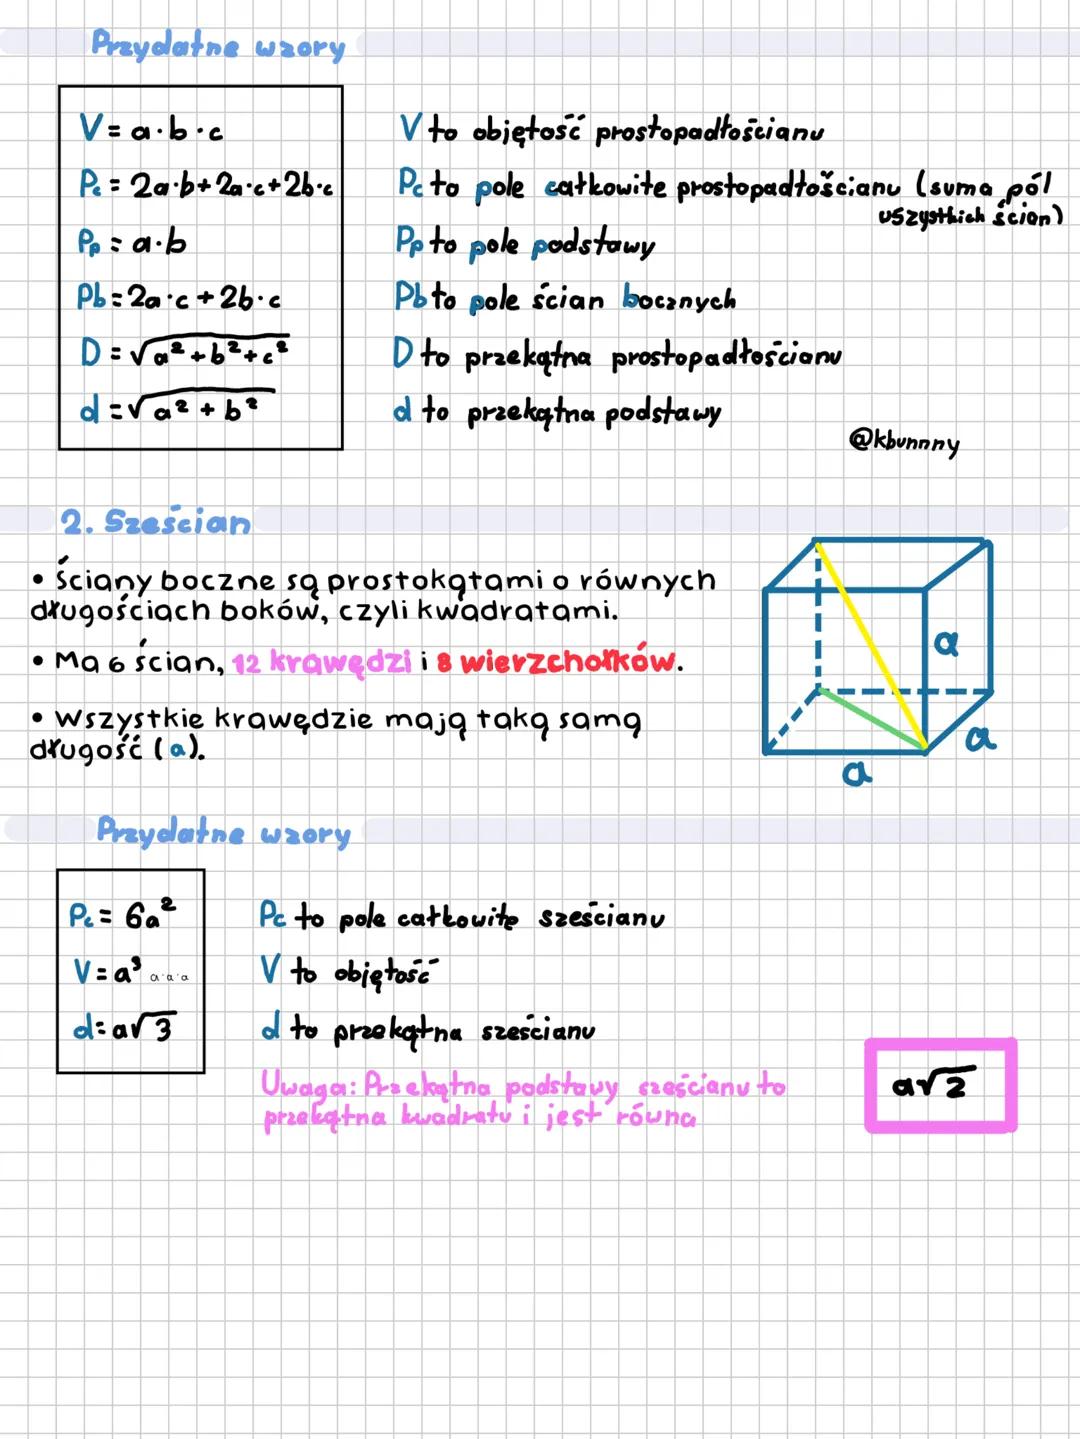 Przydatne wzory
V = a·b·c
V to objętość prostopadłościanu
Pc = 2a·b+2a·c+2b·c
Pc to pole całkowite prostopadłościanu (suma pól
wszystkich ścian)
Pp = a·b
Pp to pole podstawy
Pb = 2a·c + 2b·c
Pb to pole ścian bocznych
D = √a²+b²+c²
D to przekątna prostopadłościanu
d = √a² + b²
d to przekątna podstawy
@kbunnny
2. Sześcian
• Ściany boczne są prostokątami o równych
długościach boków, czyli kwadratami.
• Ma 6 ścian, 12 krawędzi i 8 wierzchołków.
• Wszystkie krawędzie mają taką samą
długość (a).
a
a
a
Przydatne wzory
Pc = 6a²
Pc to pole całkowitę sześcianu
V = a³ a·a·a
V to objętość
d = a√3
d to przekątna sześcianu
Uwaga: Przekątna podstawy sześcianu to
przekątna kwadratu i jest równa
a√2